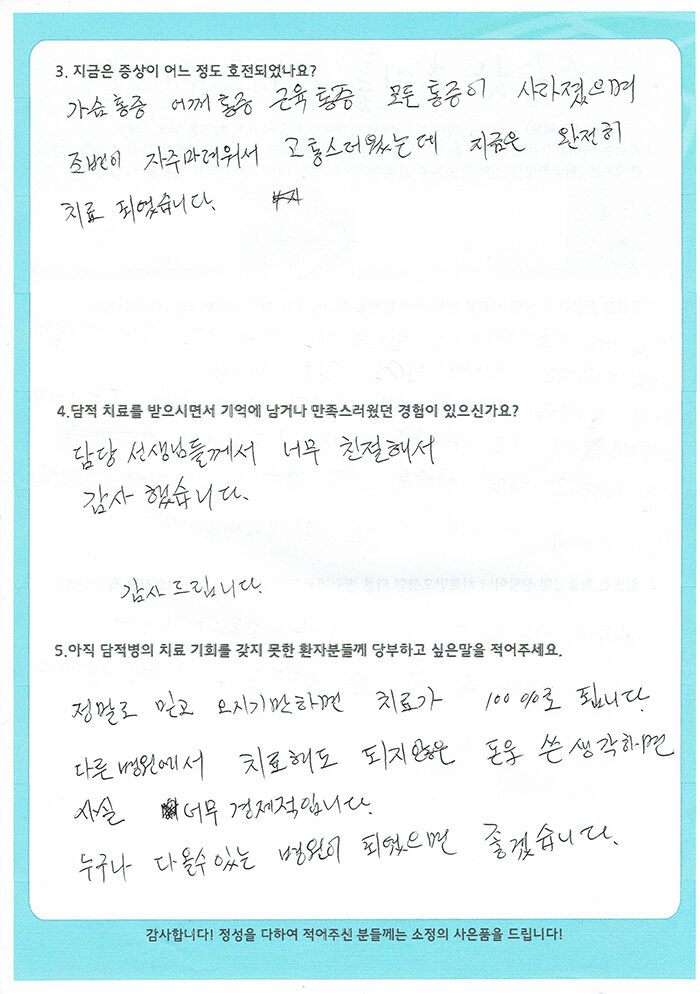 3. 지금은 증상이 어느 정도 호전되었나요?
가슴통증 어깨 통증 근육통증 모든 통증이 사라졌으며
소변이 자주마려워서 고통스러웠는데 지금은 완전히
치료 되였습니다.
4.담적 치료를 받으시면서 기억에 남거나 만족스러웠던 경험이 있으신가요?
담당 선생님들께서 너무 친절해서
감사 했습니다.
감사드립니다.
5.아직 담적병의 치료 기회를 갖지 못한 환자분들께 당부하고 싶은말을 적어주세요.
정말로 믿고 오시기만하면 치료가 100%로 됩니다.
다른병원에서 치료해도 되지않은 돈을 쓴생각하면
사실 너무경제적입니다.
누구나 다올수있는 병원이 되였으면 좋겠습니다.
감사합니다! 정성을 다하여 적어주신 분들께는 소정의 사은품을 드립니다!